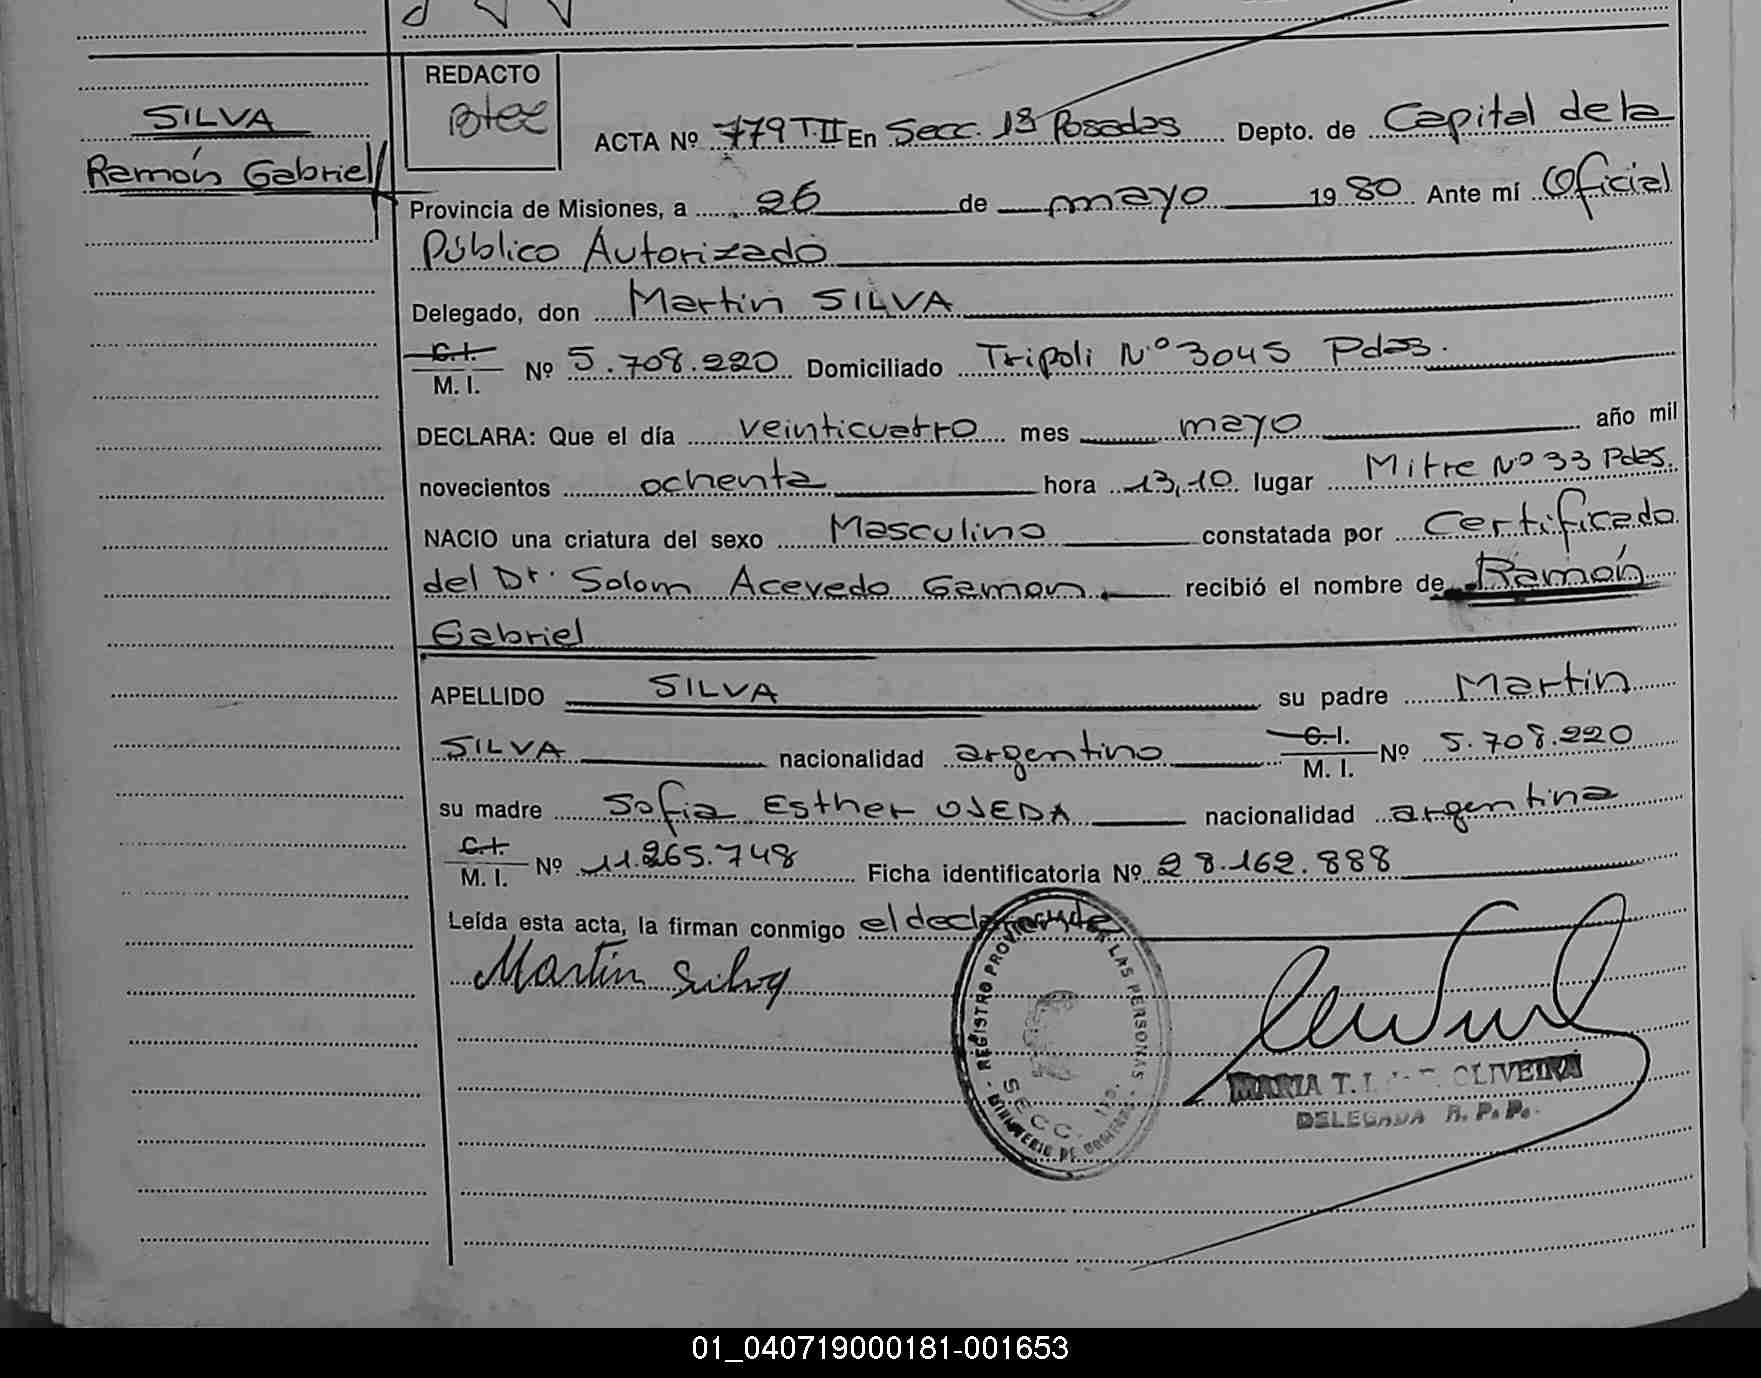 SILVA
Ramón Gabriel
REDACTO
ACTA Nº 779 T.II En Secc. 1ª Posadas Depto. de Capital de la
Provincia de Misiones, a 26 de mayo 1980 Ante mí Oficial
Público Autorizado
Delegado, don Martin SILVA
C.I. / M. I. Nº 5.708.220 Domiciliado Tripoli Nº 3045 Pdas.
DECLARA: Que el día veinticuatro mes mayo año mil
novecientos ochenta hora 13,10 lugar Mitre Nº 33 Pdas.
NACIO una criatura del sexo Masculino constatada por Certificado
del Dr. Solom Acevedo Gamon recibió el nombre de Ramón
Gabriel
APELLIDO SILVA su padre Martin
SILVA nacionalidad argentino C.I. / M. I. Nº 5.708.220
su madre Sofia Esther OJEDA nacionalidad argentina
C.I. / M. I. Nº 11.265.748 Ficha identificatoria Nº 28.162.888
Leída esta acta, la firman conmigo el declarante
Martin Silva
REGISTRO PROV. DE LAS PERSONAS
SECC.
MINISTERIO DE GOBIERNO
MARIA T. OLIVEIRA
DELEGADA R. P. P.
01_040719000181-001653